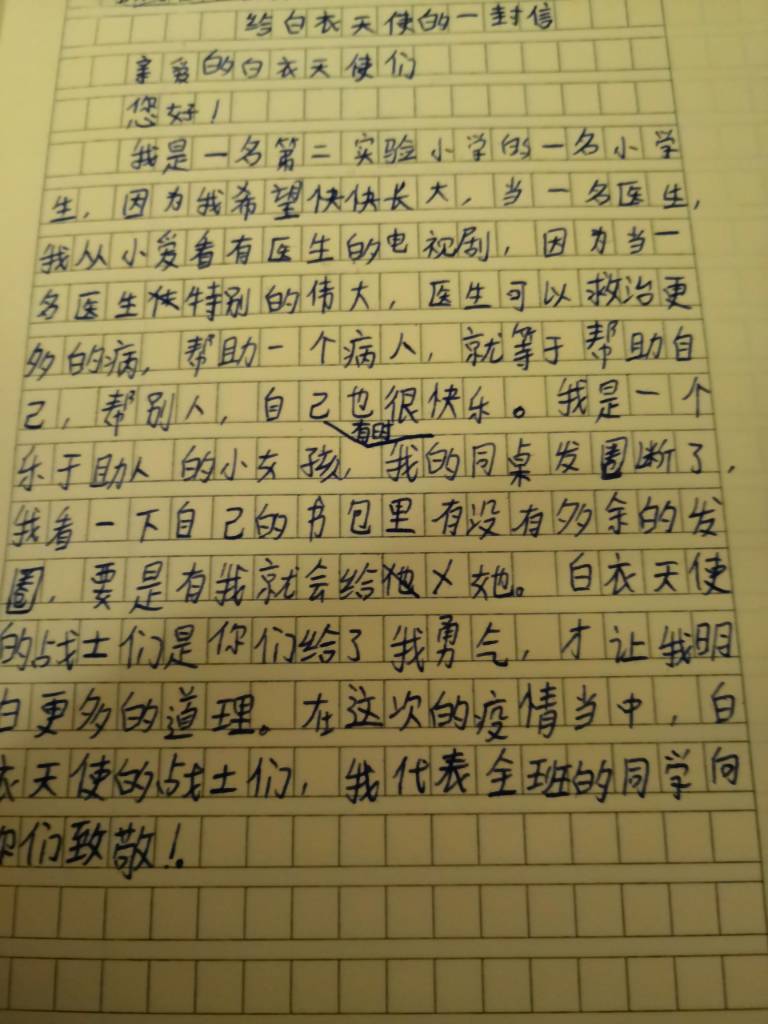 给白衣天使的一封信
亲爱的白衣天使们
您好！
我是一名第二实验小学的一名小学
生，因为我希望快快长大，当一名医生，
我从小爱看有医生的电视剧，因为当一
名医生特别的伟大，医生可以救治更
多的病，帮助一个病人，就等于帮助自
己，帮别人，自己也很快乐。我是一个
有时
乐于助人的小女孩，我的同桌发圈断了，
我看一下自己的书包里有没有多余的发
圈，要是有我就会给她。白衣天使
的战士们是你们给了我勇气，才让我明
白更多的道理。在这次的疫情当中，白
衣天使的战士们，我代表全班的同学向
你们致敬！